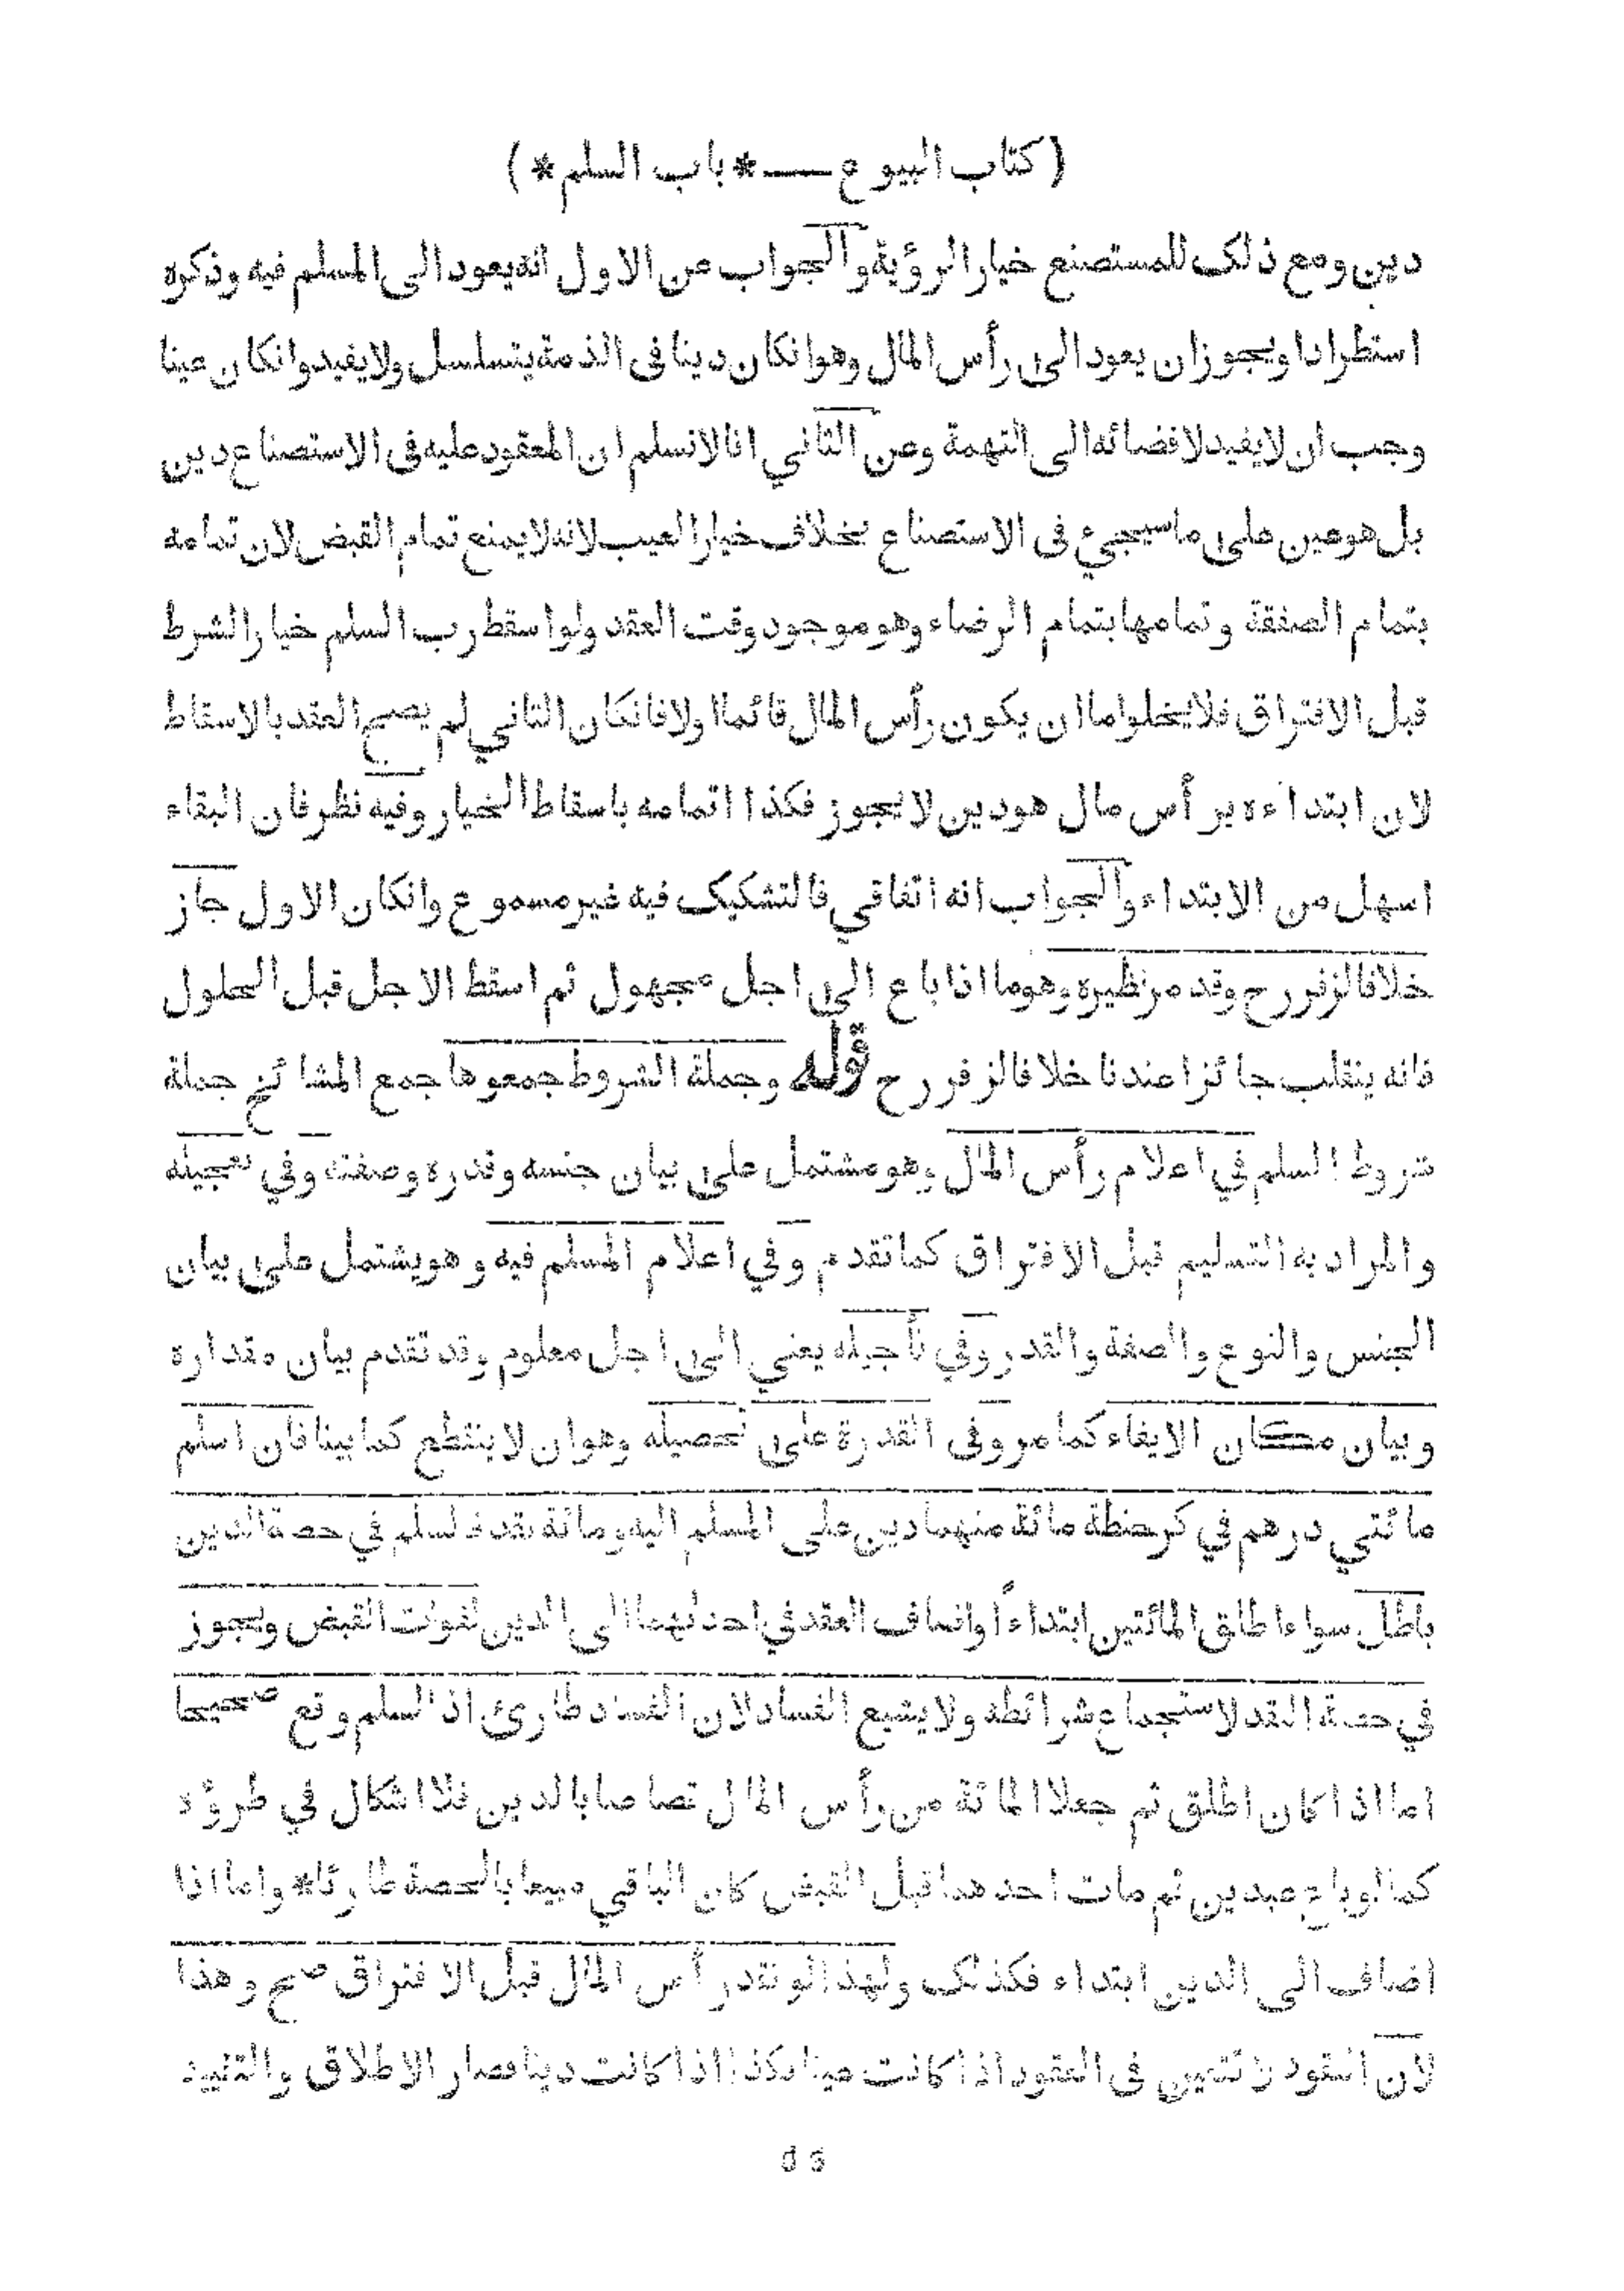 ( كتاب البيوع — * باب السلم * )
دين ومع ذلك للمستصنع خيار الرؤية والجواب عن الاول انه يعود الى المسلم فيه وذكره
استطرادا ويجوز ان يعود الى رأس المال وهو انكان دينا فى الذمة يتسلسل ولا يفيد وانكان عينا
وجب ان لا يفيد لافضائه الى التهمة وعن الثاني انا لا نسلم ان المعقود عليه فى الاستصناع دين
بل هو عين على ما سيجيء فى الاستصناع بخلاف خيار العيب لانه لا يمنع تمام القبض لان تمامه
بتمام الصفقة وتمامها بتمام الرضاء وهو موجود وقت العقد ولو اسقط رب السلم خيار الشرط
قبل الافتراق فلا يخلوا ما ان يكون رأس المال قائما اولا فانكان الثاني لم يصح العقد بالاسقاط
لان ابتداءه برأس مال هو دين لا يجوز فكذا اتمامه باسقاط الخيار وفيه نظر فان البقاء
اسهل من الابتداء والجواب انه اتفاقي فالتشكيك فيه غير مسموع وانكان الاول جاز
خلافا لزفر رح وقد مر نظيره وهو ما اذا باع الى اجل مجهول ثم اسقط الاجل قبل الحلول
فانه ينقلب جائزا عندنا خلافا لزفر رح قوله وجملة الشروط جمعوها جمع المشائخ جملة
شروط السلم في اعلام رأس المال وهو مشتمل على بيان جنسه وقدره وصفته وفي تعجيله
والمراد به التسليم قبل الافتراق كما تقدم وفي اعلام المسلم فيه وهو يشتمل على بيان
الجنس والنوع والصفة والقدر وفي تأجيله يعني الى اجل معلوم وقد تقدم بيان مقداره
وبيان مكان الايفاء كما مر وفى القدرة على تحصيله وهو ان لا ينقطع كما بينا فان اسلم
مائتي درهم في كر حنطة مائة منهما دين على المسلم اليه ومائة نقد فالسلم في حصة الدين
باطل سواء اطلق المائتين ابتداءً او اضاف العقد في احدٮهما الى الدين لفوات القبض ويجوز
في حصة النقد لاستجماع شرائطه ولا يشيع الفساد لان الفساد طارئ اذ السلم وقع صحيحا
اما اذا كان اطلق ثم جعلا المائة من رأس المال قصاصا بالدين فلا اشكال في طروّه
كما لو باع عبدين ثم مات احدهما قبل القبض كان الباقي مبيعا بالحصة طارئا * واما اذا
اضاف الى الدين ابتداء فكذلك ولهذا لو نقد رأس المال قبل الافتراق صح وهذا
لان النقود لا تتعين فى العقود اذا كانت عينا فكذا اذا كانت دينا فصار الاطلاق والتقييد